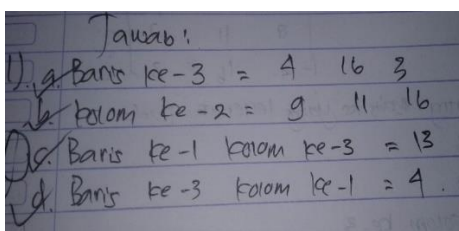 Jawab:
1). a. Baris ke-3 = 4 16 3
b. kolom ke-2 = 9 11 16
c. Baris ke-1 kolom ke-3 = 13
d. Baris ke-3 kolom ke-1 = 4.